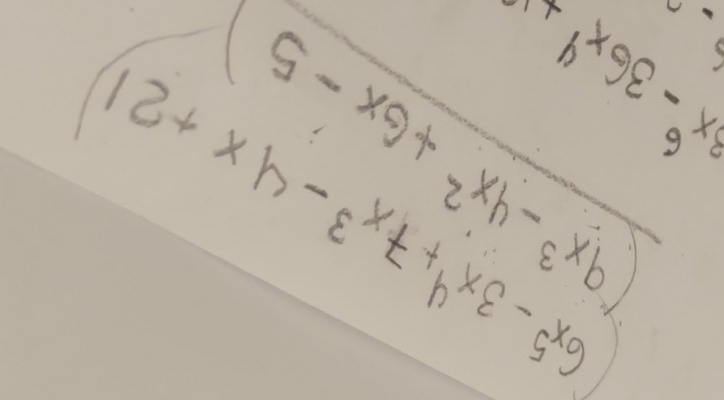 (6x⁵ - 3x⁴ + 7x³ - 4x + 21)
(9x³ - 4x² + 6x - 5)
3x⁶ - 36x⁴ +